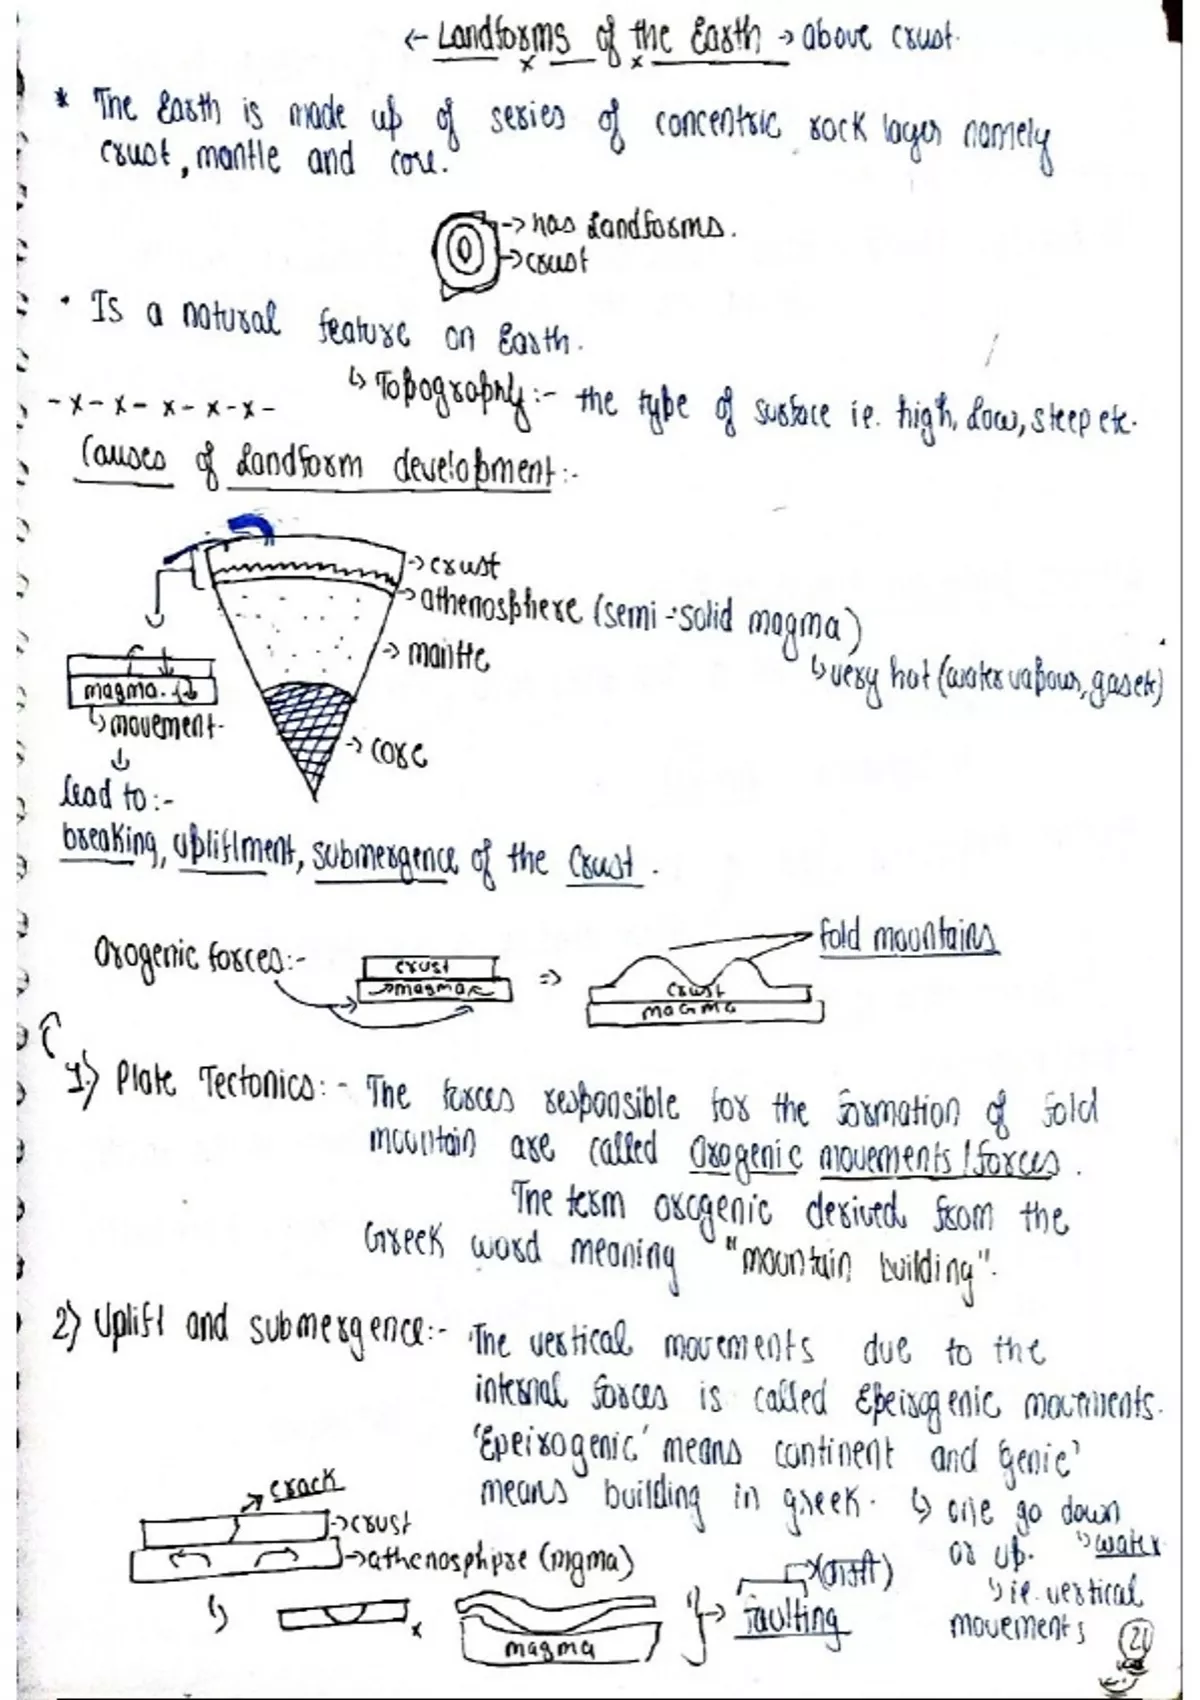 ← Landforms of the Earth → above crust.
* The Earth is made up of series of concentric rock layer namely
crust, mantle and core.
→ has Landforms.
→ crust
• Is a natural feature on Earth.
↳ Topography:- the type of surface ie. high, low, steep etc.
- x - x - x - x - x -
Causes of Landform development:-
→ crust
→ athenosphere (semi-solid magma)
↳ very hot (water vapour, gas etc)
→ mantle
magma.
↳ movement.
→ core
↓
lead to:-
breaking, upliftment, submergence of the Crust.
Orogenic forces:-
crust
magma
⇒
fold mountains
crust
MAGMA
1.) Plate Tectonics:- The forces responsible for the formation of fold
mountain are called Orogenic movements / forces.
The term orogenic derived from the
Greek word meaning "mountain building".
2) Uplift and submergence:- The vertical movements due to the
internal forces is called Epeirogenic movements.
'Epeirogenic' means continent and genic'
means building in greek. ↳ one go down
or up. ↳ water
↳ ie. vertical
movements
crack
→ crust
→ athenosphpre (mgma)
↳
x
magma
→ faulting
21